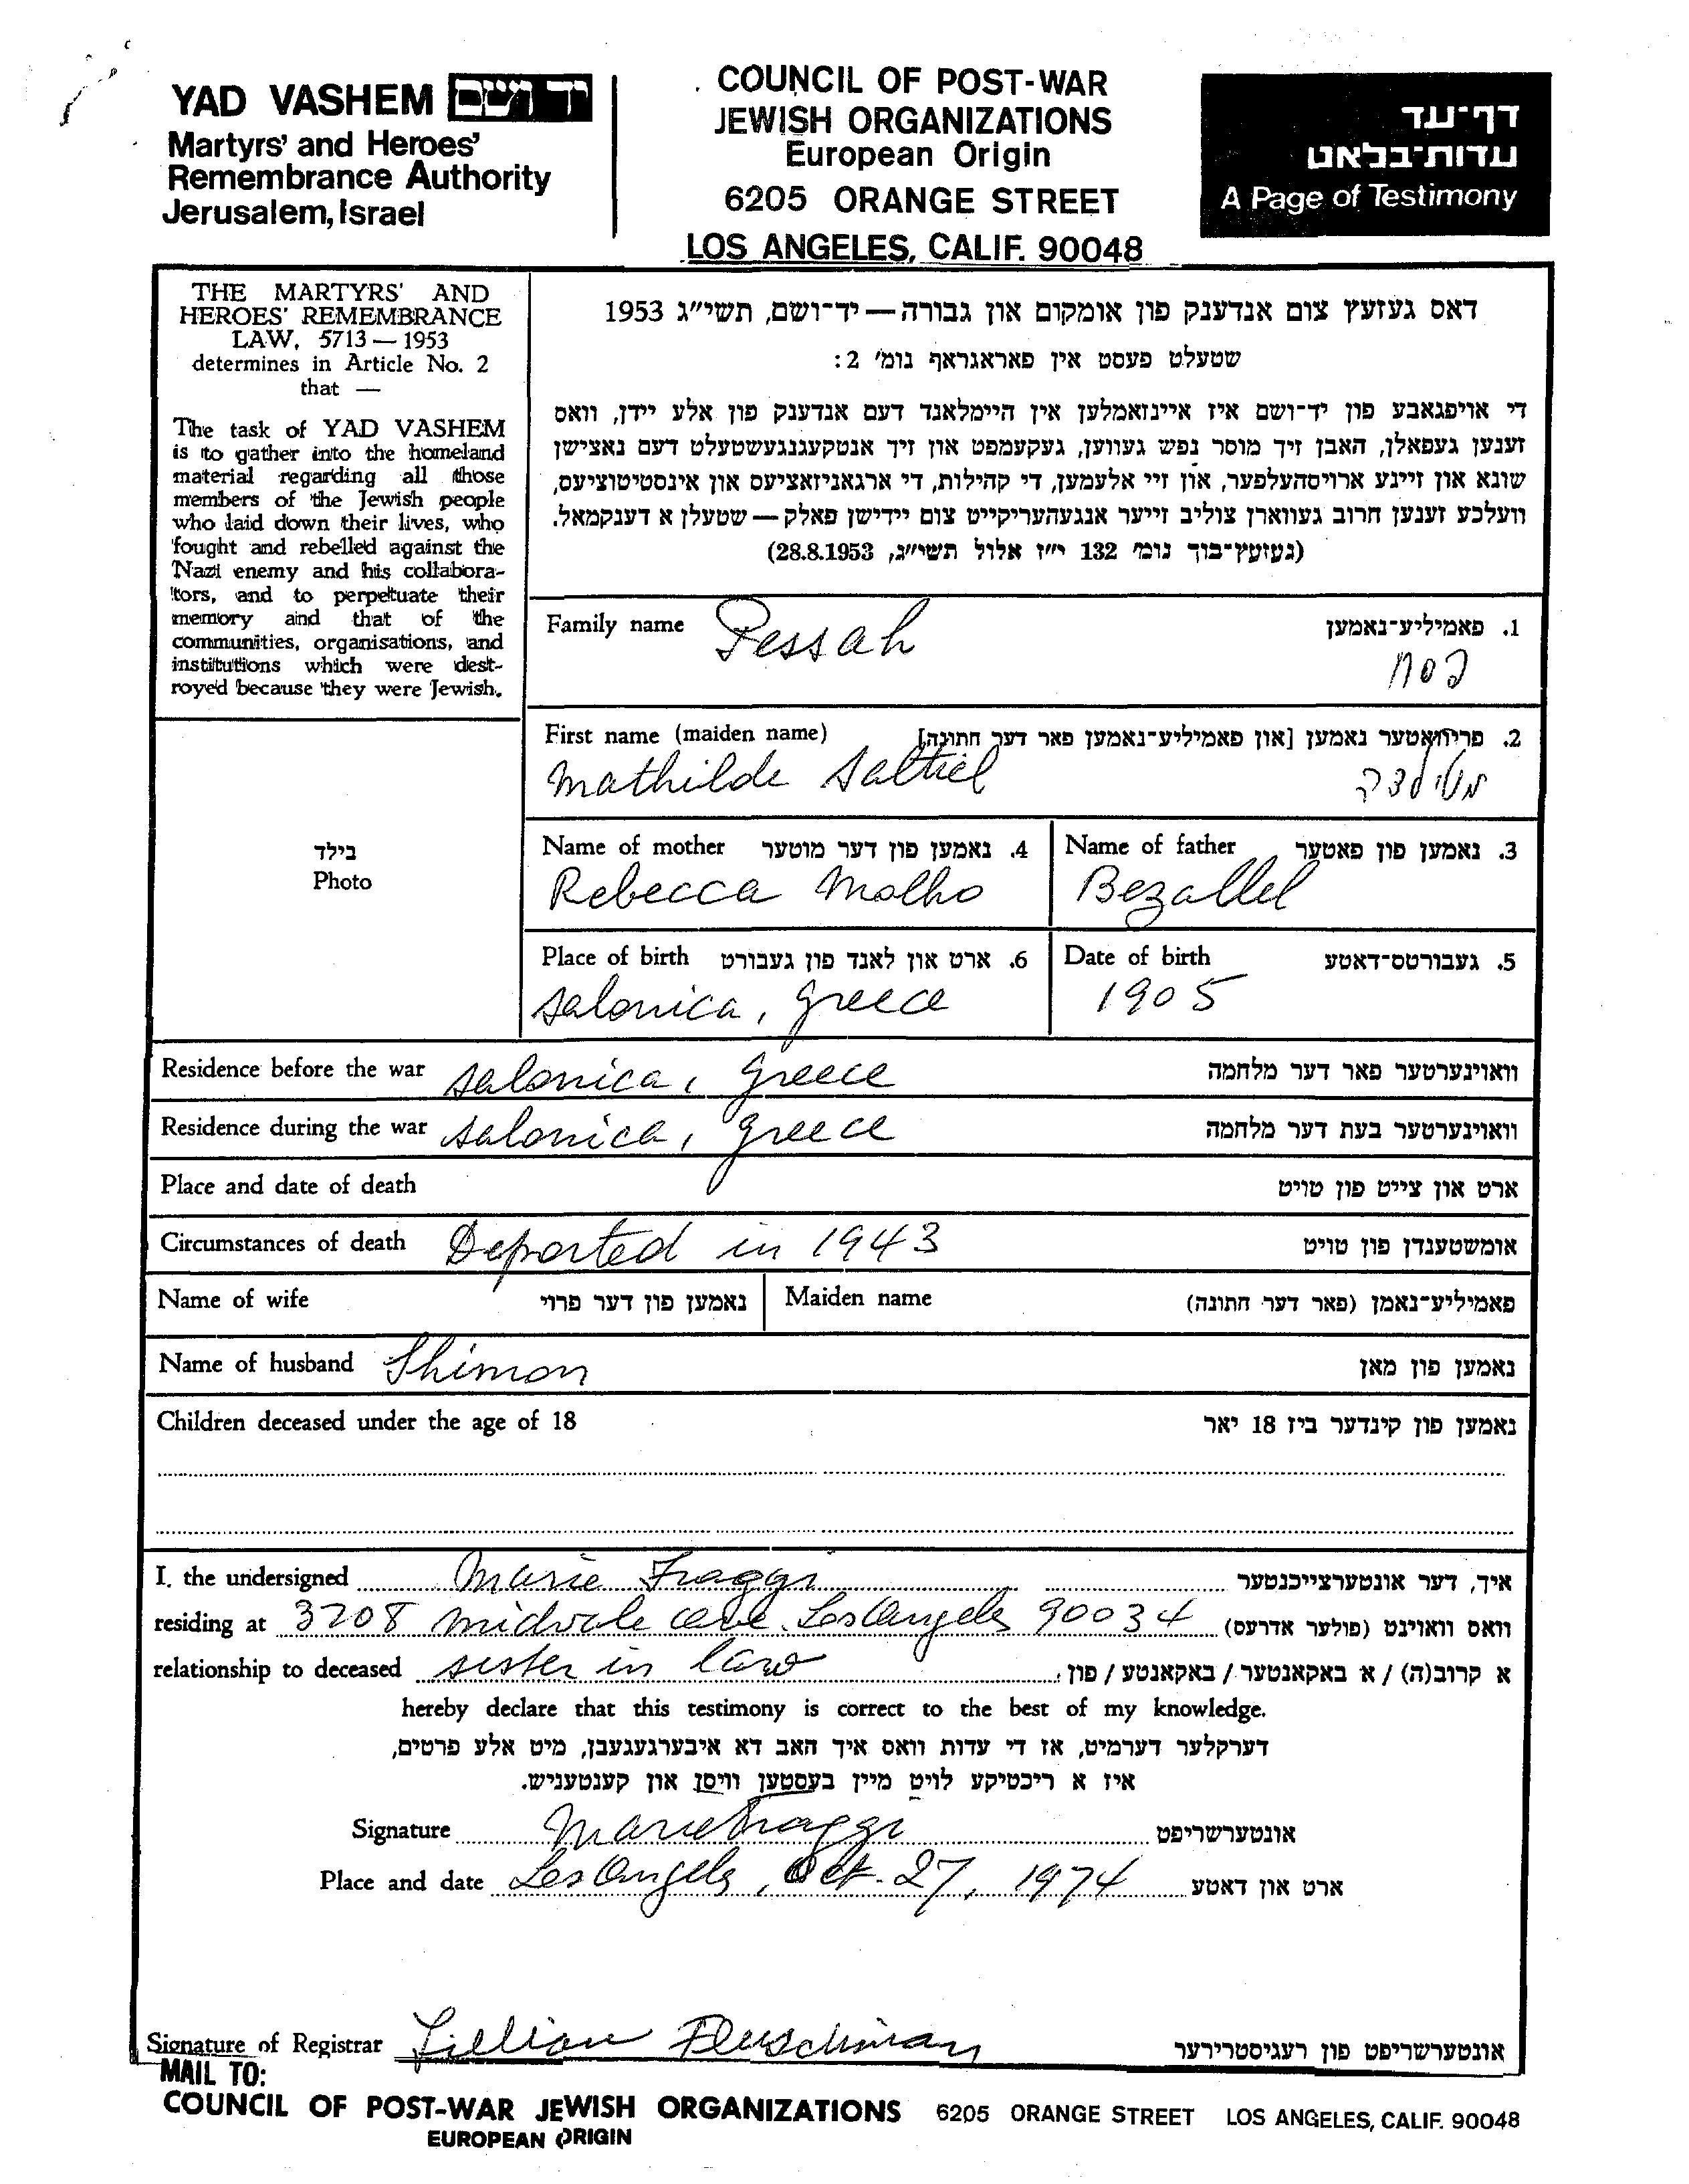 YAD VASHEM יד ושם
Martyrs' and Heroes'
Remembrance Authority
Jerusalem, Israel
COUNCIL OF POST-WAR
JEWISH ORGANIZATIONS
European Origin
6205 ORANGE STREET
LOS ANGELES, CALIF. 90048
דף־עד
עדות־בלאט
A Page of Testimony
THE MARTYRS' AND
HEROES' REMEMBRANCE
LAW, 5713 — 1953
determines in Article No. 2
that —
The task of YAD VASHEM
is to gather into the homeland
material regarding all those
members of the Jewish people
who laid down their lives, who
fought and rebelled against the
Nazi enemy and his collabora-
tors, and to perpetuate their
memory and that of the
communities, organisations, and
institutions which were dest-
royed because they were Jewish.
דאס געזעץ צום אנדענק פון אומקום און גבורה — יד־ושם, תשי״ג 1953
שטעלט פעסט אין פאראגראף נומ׳ 2:
די אויפגאבע פון יד־ושם איז איינזאמלען אין היימלאנד דעם אנדענק פון אלע יידן, וואס
זענען געפאלן, האבן זיך מוסר נפש געווען, געקעמפט און זיך אנטקעגנגעשטעלט דעם נאצישן
שונא און זיינע ארויסהעלפער, און זיי אלעמען, די קהילות, די ארגאניזאציעס און אינסטיטוציעס,
וועלכע זענען חרוב געווארן צוליב זייער אנגעהעריקייט צום יידישן פאלק — שטעלן א דענקמאל.
(געזעץ־בוך נומ׳ 132 י״ז אלול תשי״ג, 28.8.1953)
Family name Pessah 1. פאמיליע־נאמען
פסח
First name (maiden name) 2. פריוואטער נאמען [און פאמיליע־נאמען פאר דער חתונה]
Mathilde Saltiel מטילדה
בילד
Photo
Name of mother 4. נאמען פון דער מוטער
Rebecca Molho
Name of father 3. נאמען פון פאטער
Bezallel
Place of birth 6. ארט און לאנד פון געבורט
Salonica, Greece
Date of birth 5. געבורטס־דאטע
1905
Residence before the war Salonica, Greece וואוינערטער פאר דער מלחמה
Residence during the war Salonica, Greece וואוינערטער בעת דער מלחמה
Place and date of death ארט און צייט פון טויט
Circumstances of death Deported in 1943 אומשטענדן פון טויט
Name of wife נאמען פון דער פרוי Maiden name פאמיליע־נאמן (פאר דער חתונה)
Name of husband Shimon נאמען פון מאן
Children deceased under the age of 18 נאמען פון קינדער ביז 18 יאר
I, the undersigned Marie Fraggi איך, דער אונטערצייכנטער
residing at 3208 Midvale ave. Los Angeles 90034 וואס וואוינט (פולער אדרעס)
relationship to deceased sister in law א קרוב(ה) / א באקאנטער / באקאנטע / פון:
hereby declare that this testimony is correct to the best of my knowledge.
דערקלער דערמיט, אז די עדות וואס איך האב דא איבערגעגעבן, מיט אלע פרטים,
איז א ריכטיקע לויט מיין בעסטען וויסן און קענטעניש.
Signature Marie Fraggi אונטערשריפט
Place and date Los Angeles, Oct. 27, 1974 ארט און דאטע
Signature of Registrar Lillian Fleischman אונטערשריפט פון רעגיסטרירער
MAIL TO:
COUNCIL OF POST-WAR JEWISH ORGANIZATIONS 6205 ORANGE STREET LOS ANGELES, CALIF. 90048
EUROPEAN ORIGIN